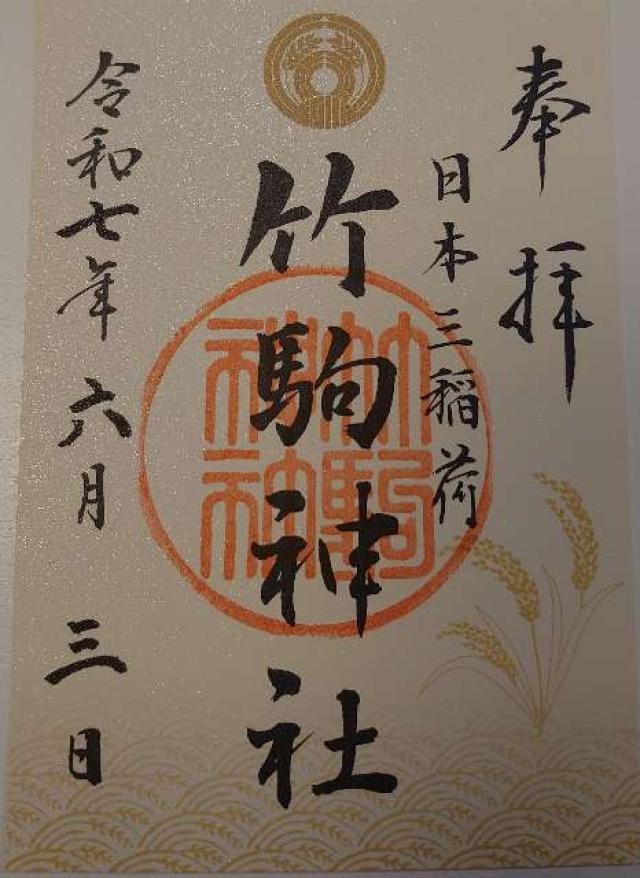 奉拝
日本三稲荷
竹駒神社
竹駒神社
令和七年六月三日